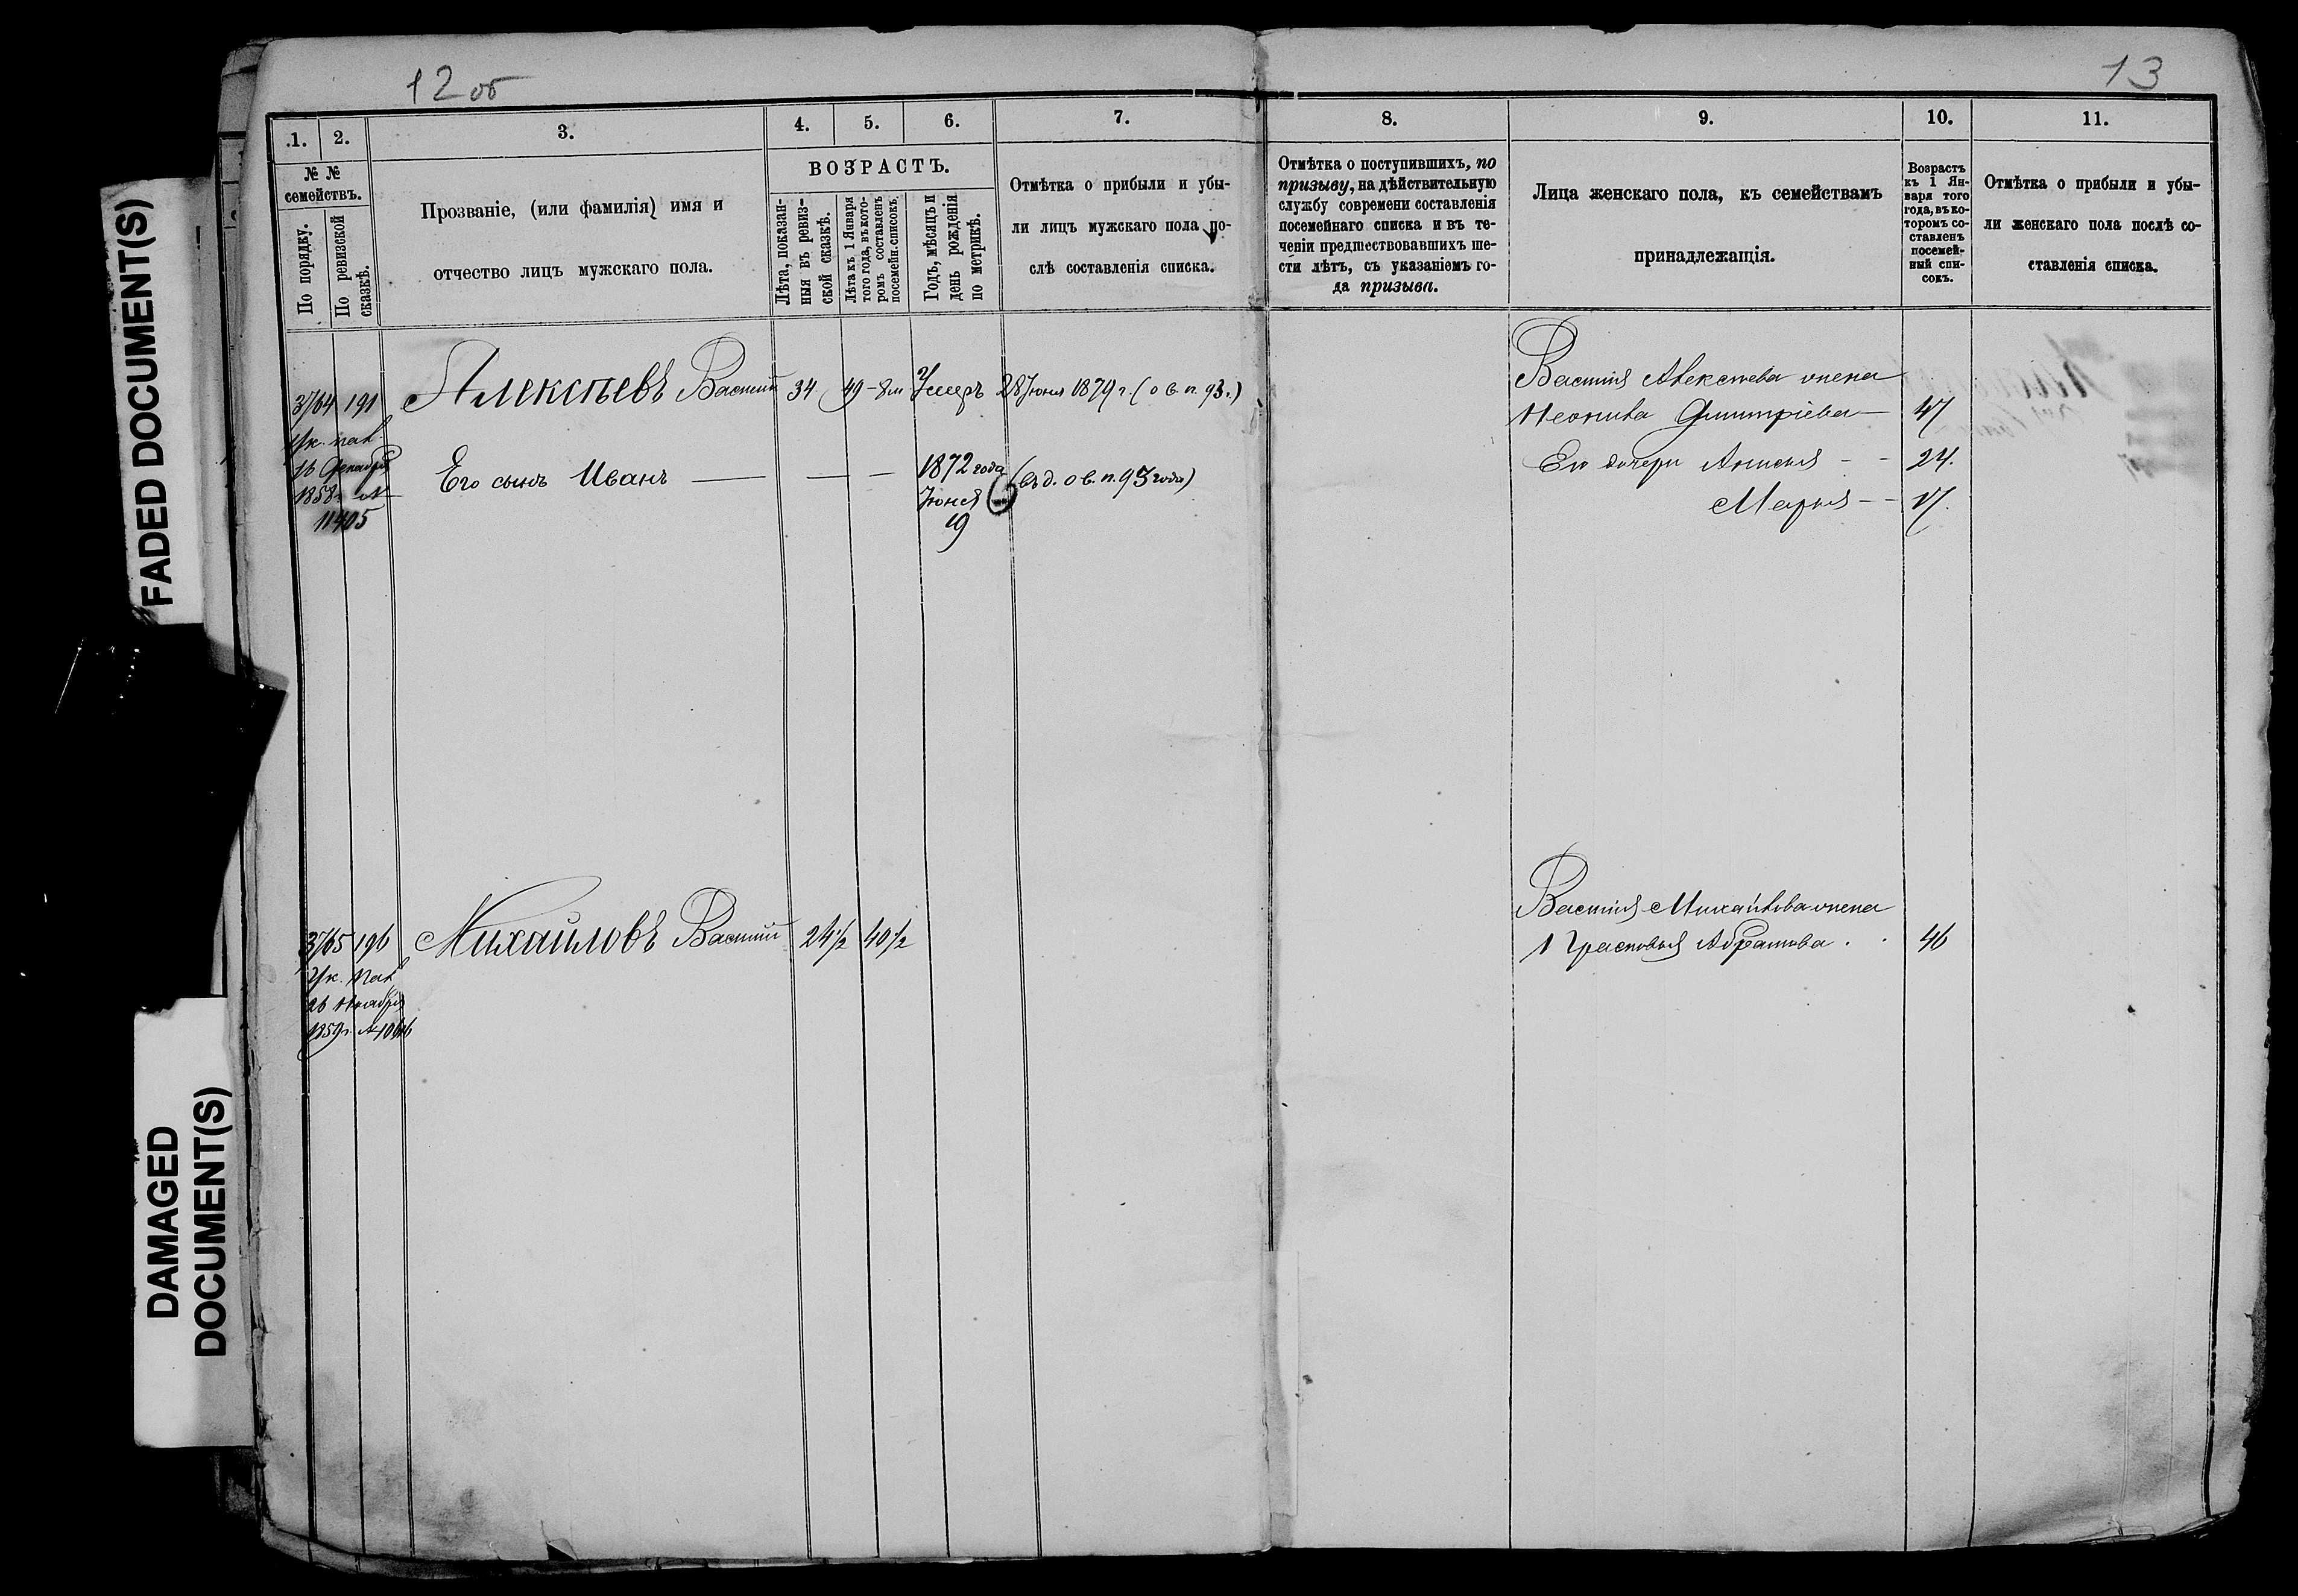 12 об
13
FADED DOCUMENT(S)
DAMAGED
DOCUMENT(S)
.1.
2.
3.
4.
5.
6.
7.
8.
9.
10.
11.
№ №
семействъ.
По порядку.
По ревизской
сказкѣ.
Прозваніе, (или фамилія) имя и
отчество лицъ мужскаго пола.
ВОЗРАСТЪ.
Лѣта, показан-
ныя въ ревиз-
ской сказкѣ.
Лѣта къ 1 Января
того года, въ кото-
ромъ составленъ
посемейн. списокъ.
Годъ, мѣсяцъ и
день рожденія
по метрикѣ.
Отмѣтка о прибыли и убы-
ли лицъ мужскаго пола по-
слѣ составленія списка.
Отмѣтка о поступившихъ, по
призыву, на дѣйствительную
службу современи составленія
посемейнаго списка и въ те-
ченіи предшествовавшихъ ше-
сти лѣтъ, съ указаніемъ го-
да призыва.
Лица женскаго пола, къ семействамъ
принадлежащія.
Возрастъ
къ 1 Ян-
варя того
года, въ ко-
торомъ со-
ставленъ
посемей-
ный спи-
сокъ.
Отмѣтка о прибыли и убы-
ли женскаго пола послѣ со-
ставленія списка.
3764 191 Алексѣевъ Василій 34 49 Умеръ 28 Іюня 1879 г. (о в. п. 93 г.)
Ук. пал.
16 Декабря
1858 г. №
11405
Его сынъ Иванъ — — — 1872 года
Іюня
19
(въ д. о в. п. 93 года)
Василія Алексѣева жена
Неонила Дмитріева — 47
Его дочери Анисья - - 24.
Марья - - 17.
3765 196 Михайловъ Василій 24½ 40½
Ук. пал
26 Ноября
1859 г. №
Василія Михайлова жена
Прасковья Абрамова . . 46